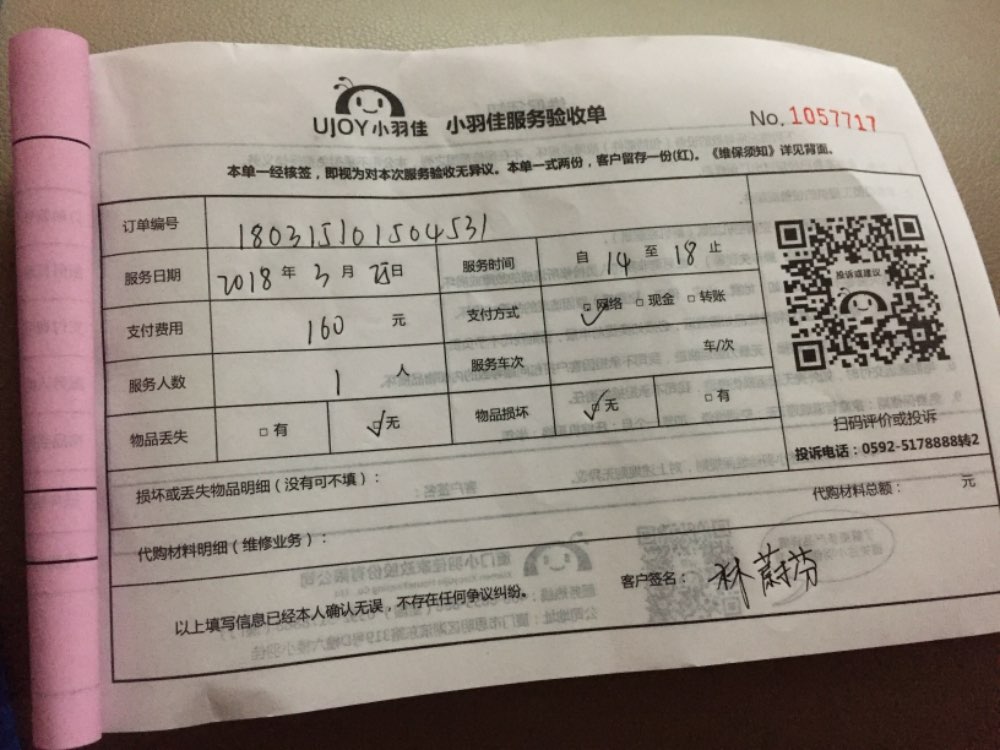 UJOY小羽佳 小羽佳服务验收单 No. 1057717
本单一经核签，即视为对本次服务验收无异议。本单一式两份，客户留存一份(红)。《维保须知》详见背面。
订单编号 180315101504531
服务日期 2018 年 3 月 日 服务时间 自 14 至 18 止
支付费用 160 元 支付方式 ☑网络 □现金 □转账
服务人数 1 人 服务车次 车/次
物品丢失 □有 ☑无 物品损坏 ☑无 □有
投诉或建议
扫码评价或投诉
投诉电话：0592-5178888转2
损坏或丢失物品明细（没有可不填）：
代购材料总额： 元
代购材料明细（维修业务）：
客户签名：林蔚芬
以上填写信息已经本人确认无误，不存在任何争议纠纷。